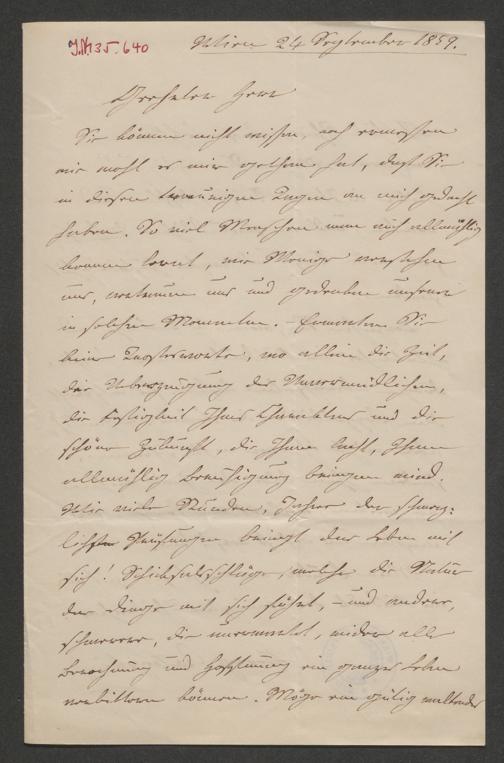 I.N. 35.640
Wien 24 September 1859.
Geehrter Herr
Sie können nicht wissen, noch ermessen
wie wohl es mir gethan hat, daß Sie
in diesen traurigen Tagen an mich gedacht
haben. So viel Menschen man auch allmählig
kennen lernt, wie Wenige verstehen
uns, und gedenken unserer
in solchen Momenten. – Erwarten Sie
keine Trostesworte, wo allein die Zeit,
die Überzeugung des Unvermeidlichen,
die Festigkeit Ihres Charakters und die
schöne Zukunft, die Ihnen lacht, Ihnen
allmählig Beruhigung bringen wird.
Wie viele Stunden, Jahre der schmerz-
lichsten Prüfungen bringt das Leben mit
sich! Schicksalsschläge, welche die Natur
der Dinge mit sich führt, – und andere,
schwerere, die unerwartet, wider alle
Berechnung und Hoffnung ein ganzes Leben
verbittern können. Möge ein gütig waltender